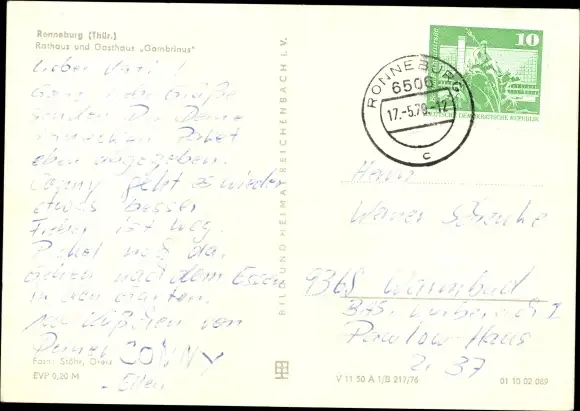 Ronneburg (Thür.)
Rathaus und Gasthaus „Gambrinus"
Lieber Vati!
Ganz Grüße
senden Dir Deine
Paket
eben abgegeben.
Conny geht es wieder
etwas besser
Fieber ist weg.
Paket noch da.
gehen nach dem Essen
in den Garten.
von
Deiner CONNY
- Ellen
Foto: Stöhr, Greiz
EVP 0,20 M
BILD UND HEIMAT REICHENBACH I. V.
RONNEBURG
6506
17.-5.79-12
c
10
DEUTSCHE DEMOKRATISCHE REPUBLIK
Herrn
Werner
9368 Warmbad
Pawlow-Haus
Zi. 37
V 11 50 A 1/B 217/76
01 10 02 089